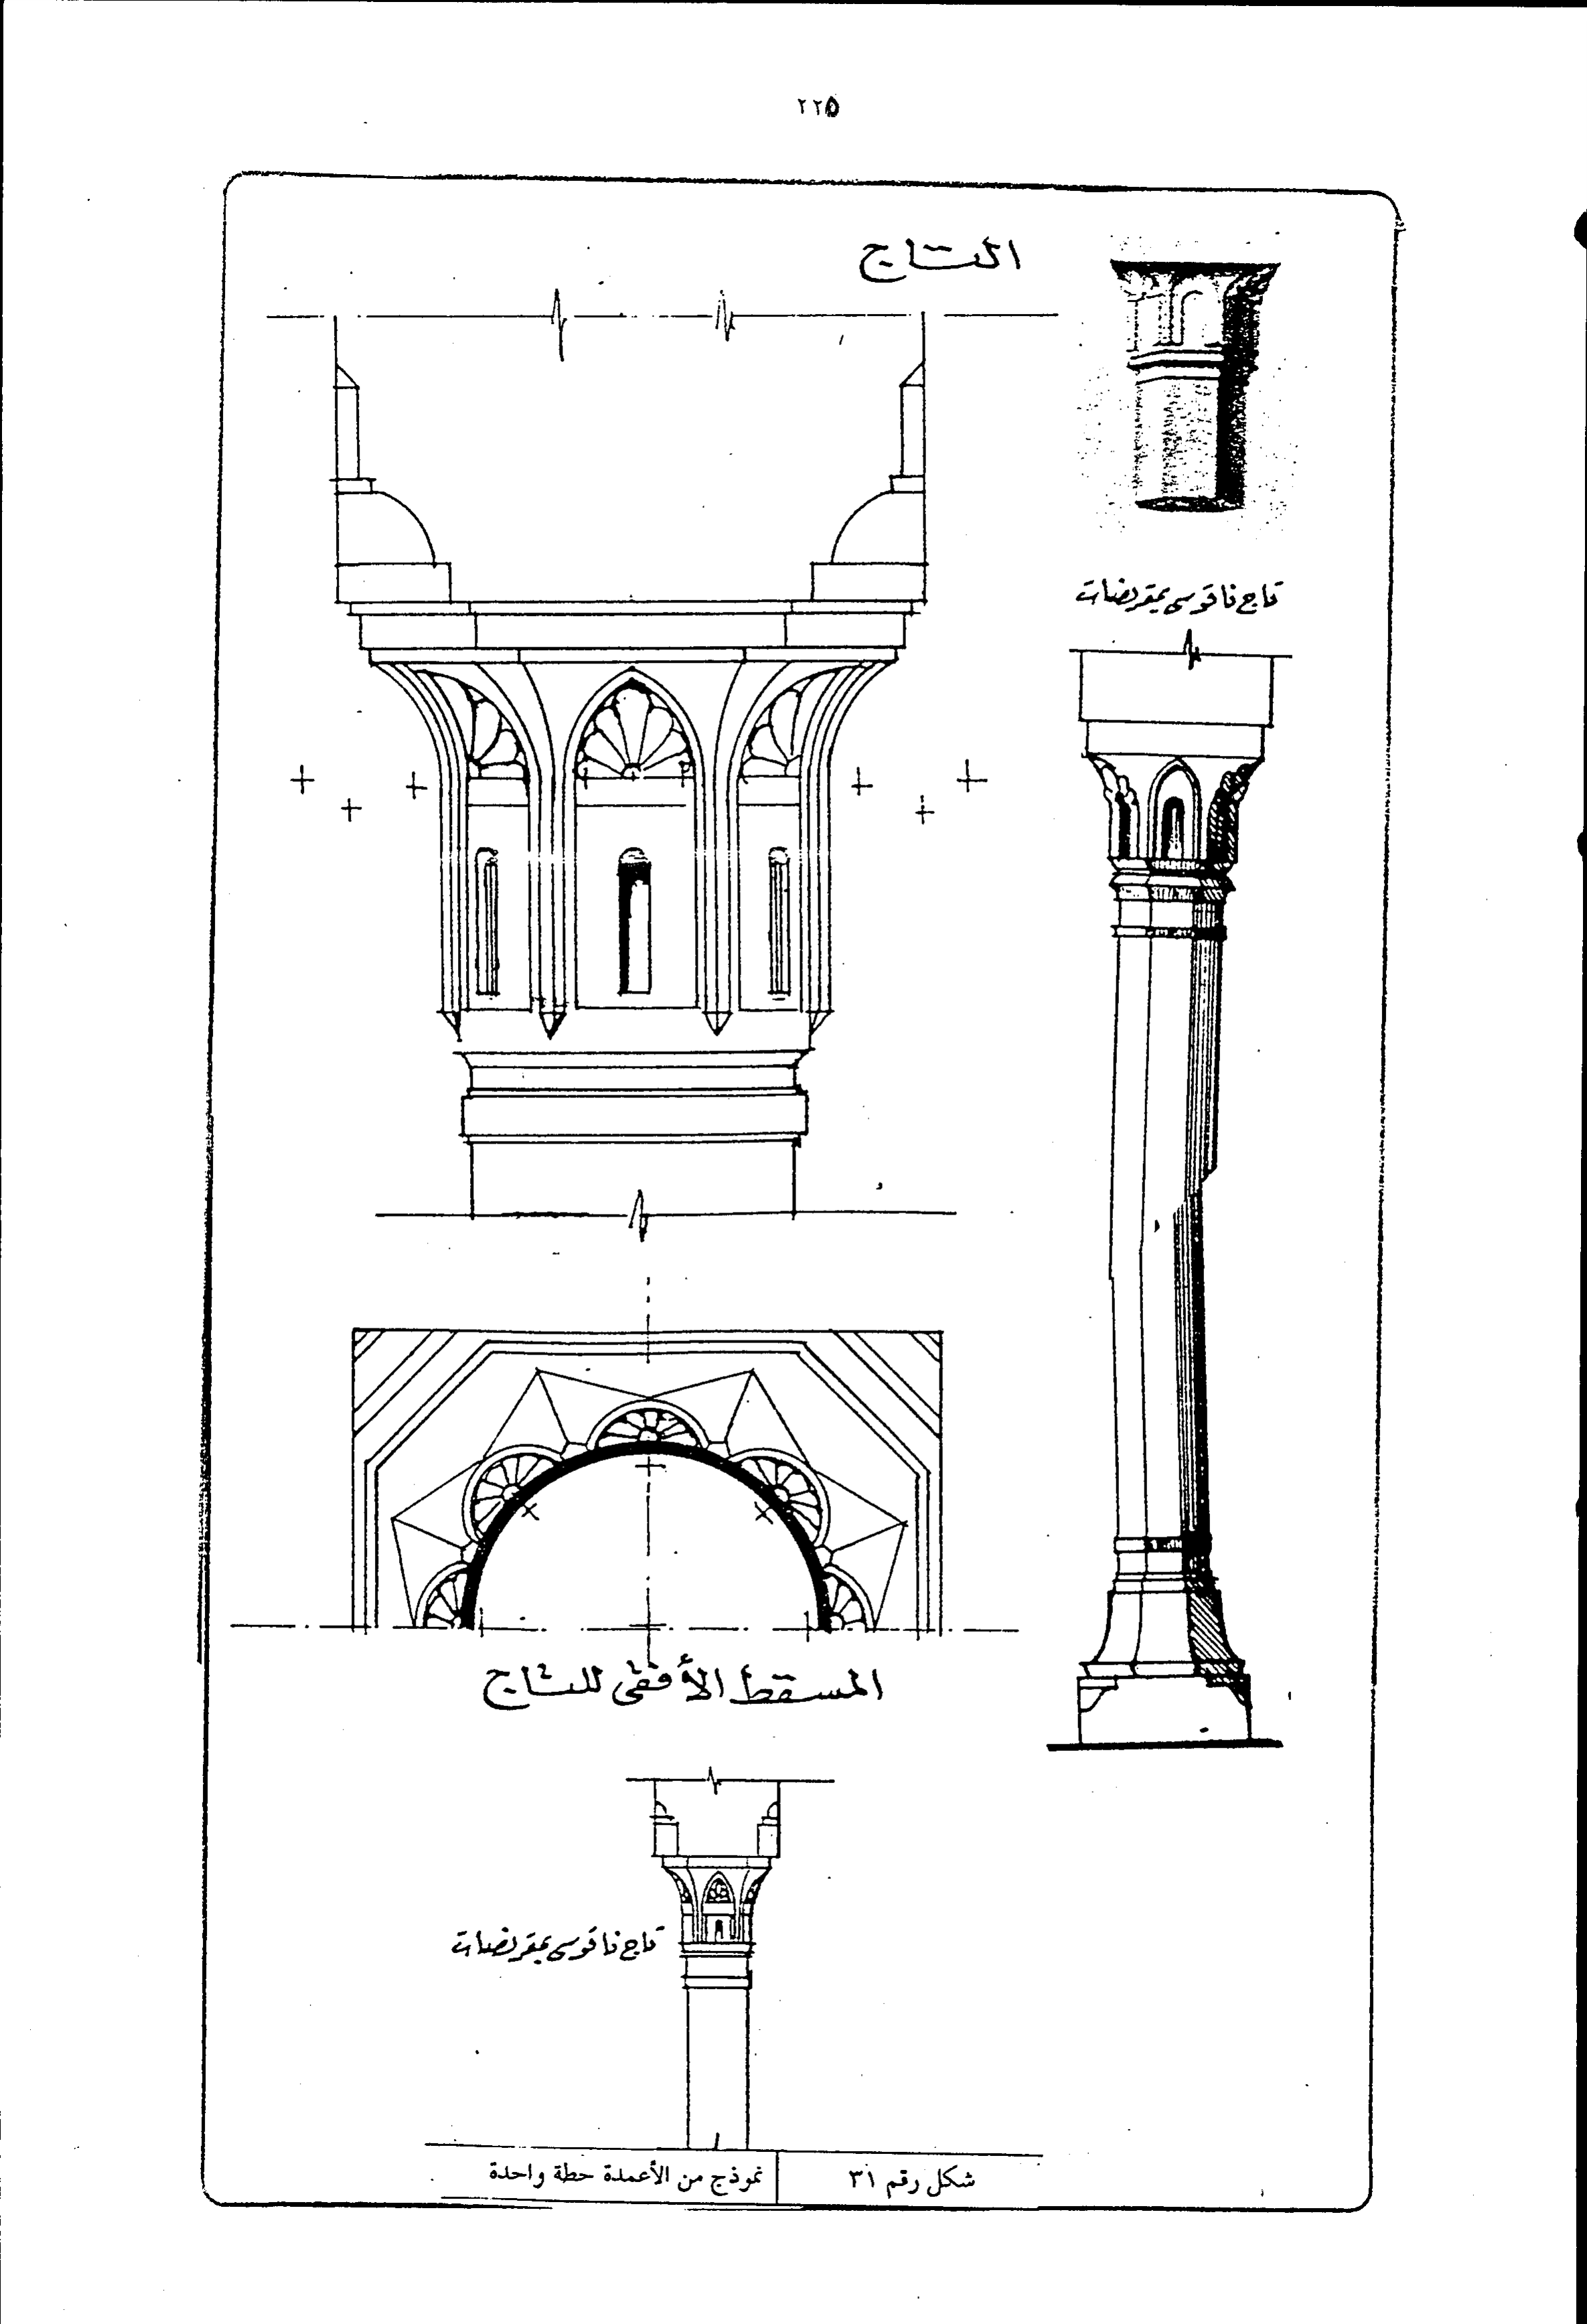 ٢٢٥
التاج
تاج ناقوسى بمقرنصات
المسقط الأفقى للتاج
تاج ناقوسى بمقرنصات
شكل رقم ٣١
نموذج من الأعمدة حطة واحدة